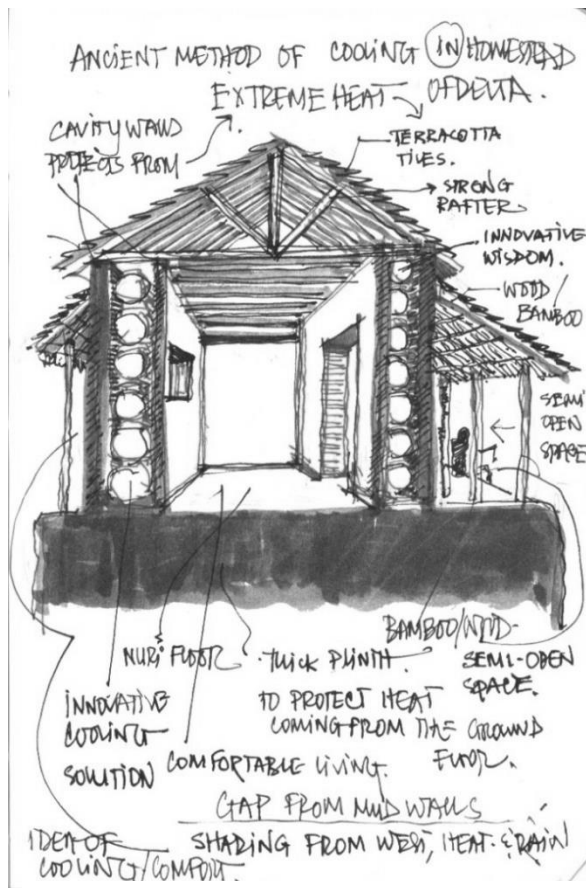 ANCIENT METHOD OF COOLING IN HOMESTEAD
OF DELTA.
CAVITY WALLS
PROTECTS FROM
EXTREME HEAT
TERRACOTTA
TILES.
STRONG
RAFTER
INNOVATIVE
WISDOM.
WOOD/
BAMBOO
SEMI
OPEN
SPACE
BAMBOO/WOOD
SEMI-OPEN
SPACE.
FLOOR
THICK PLINTH
TO PROTECT HEAT
COMING FROM THE GROUND
FLOOR.
INNOVATIVE
COOLING
SOLUTION
COMFORTABLE LIVING.
GAP FROM MUD WALLS
SHADING FROM WEST, HEAT & RAIN
IDEA OF
COOLING/COMFORT.